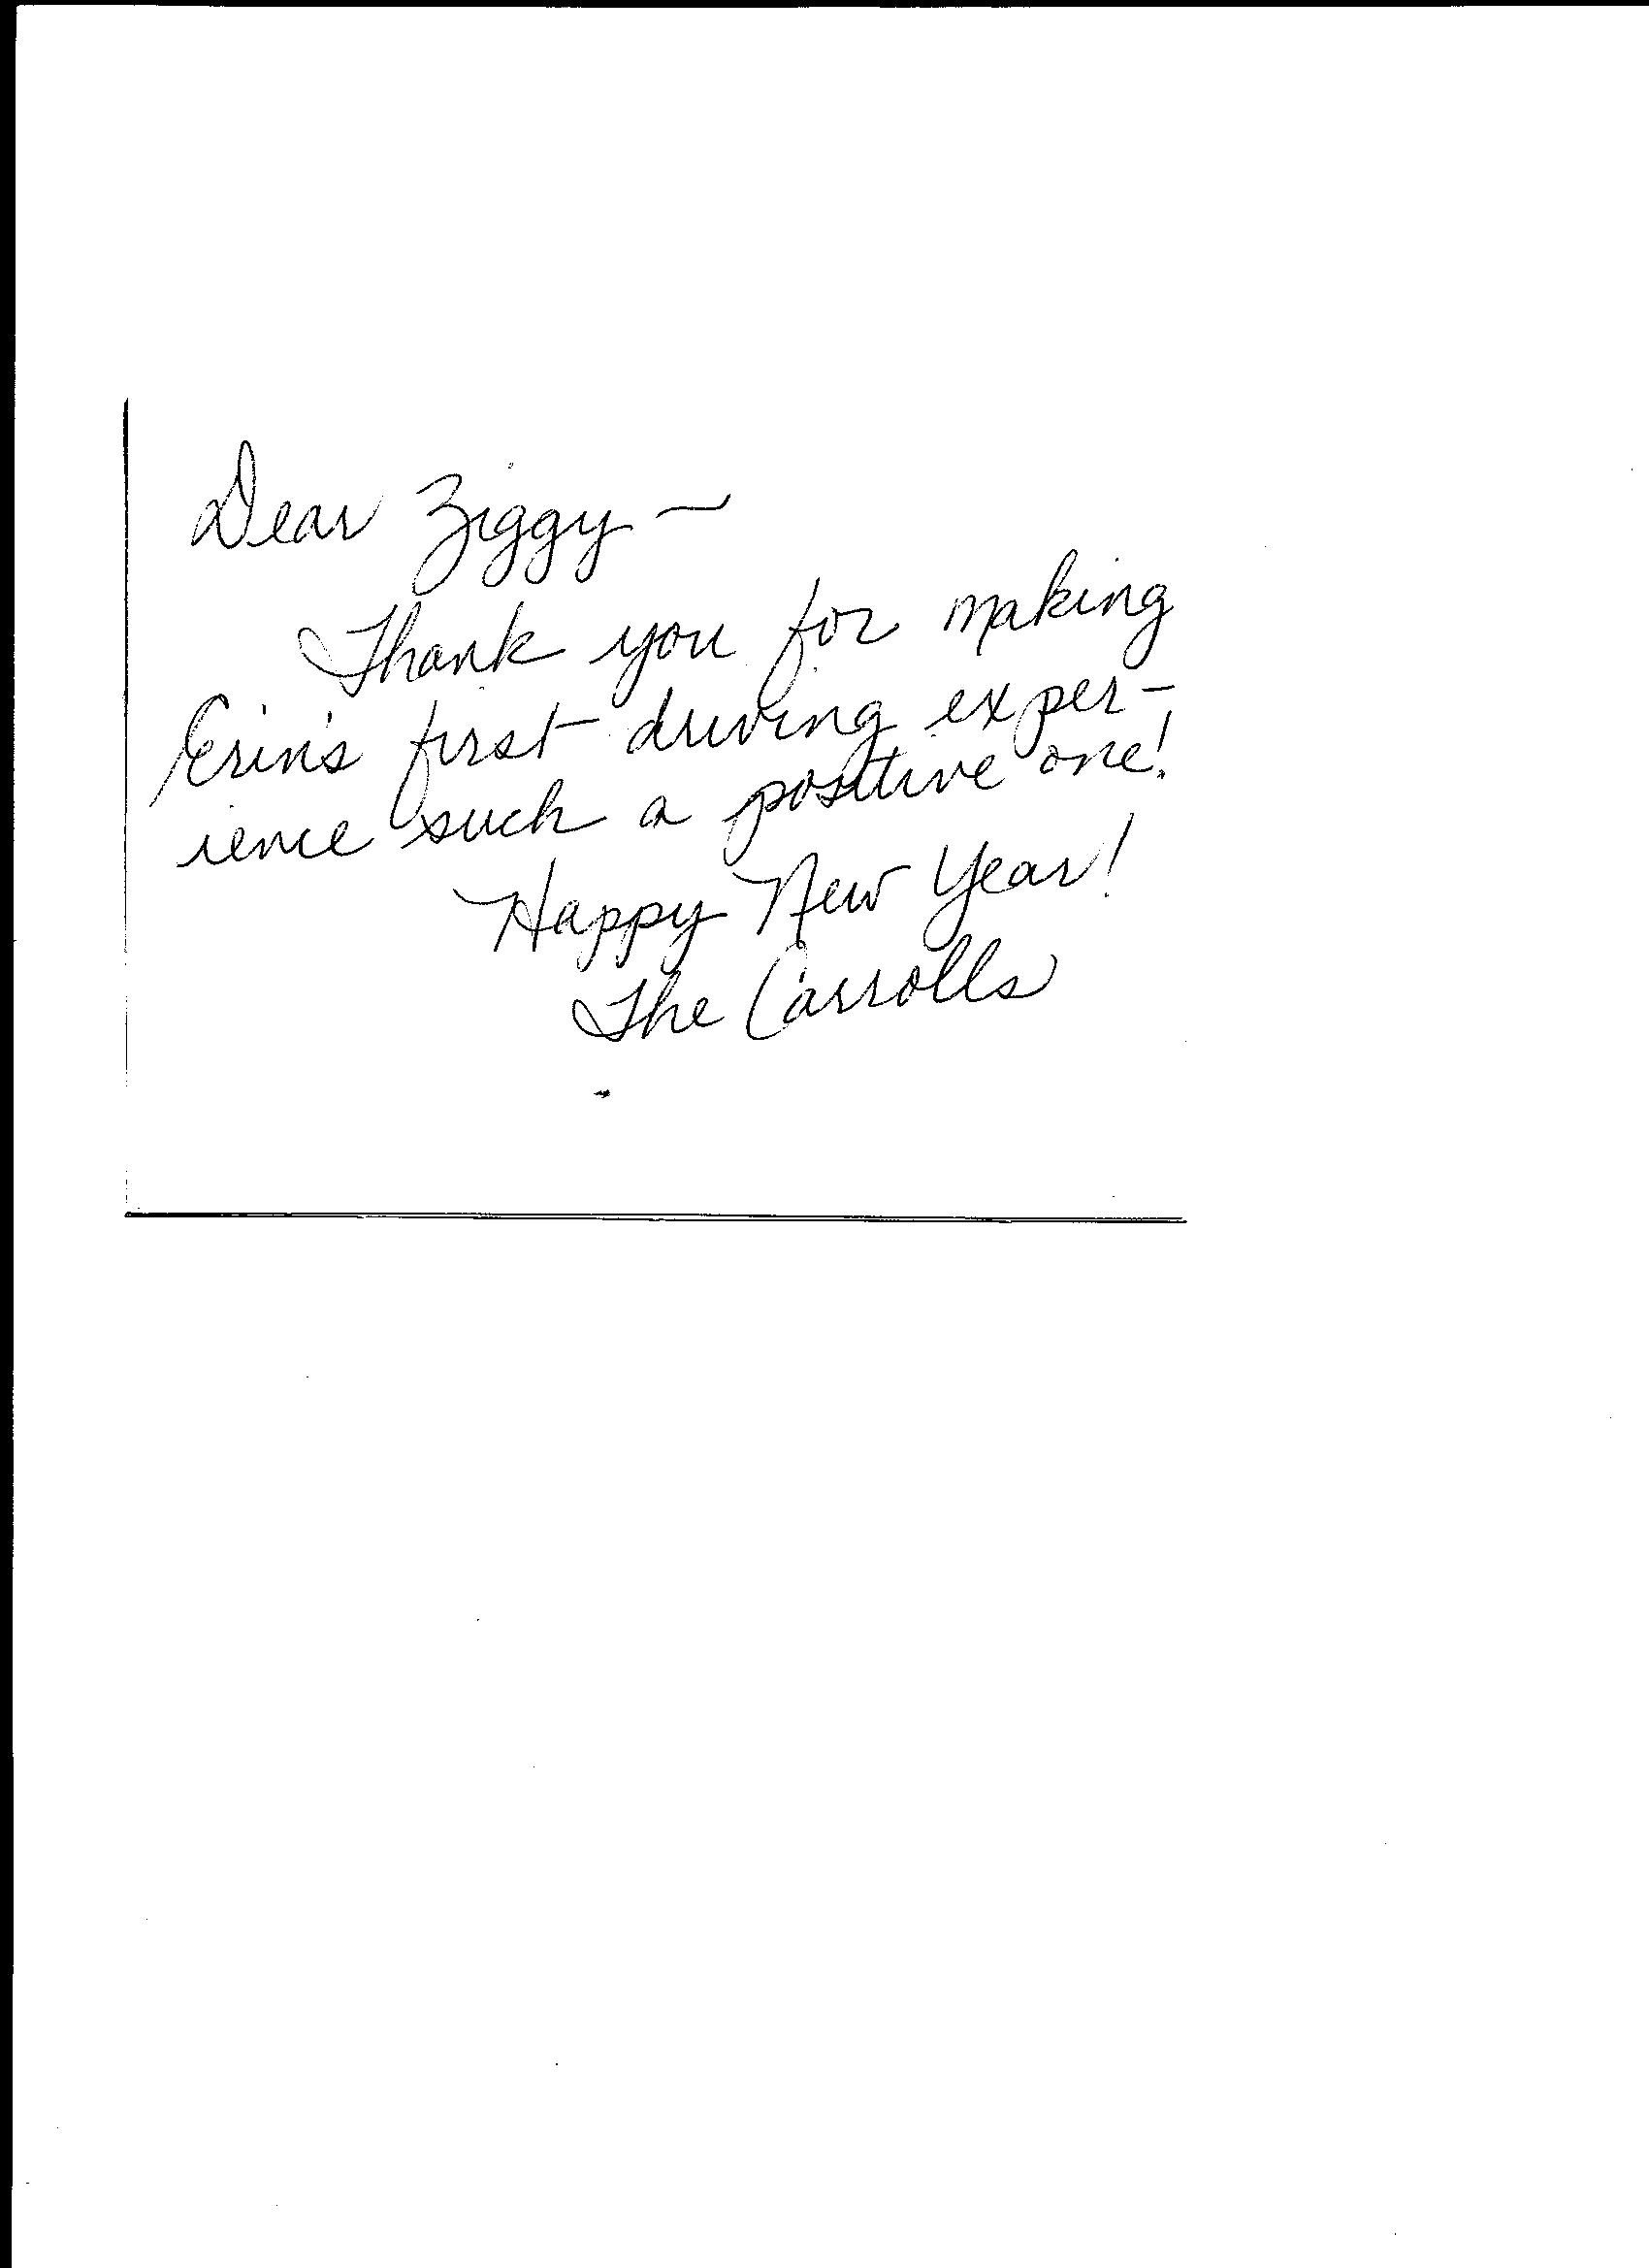 Dear Ziggy –
Thank you for making
Erin's first driving exper-
ience such a positive one!
Happy New Year!
The Carrolls